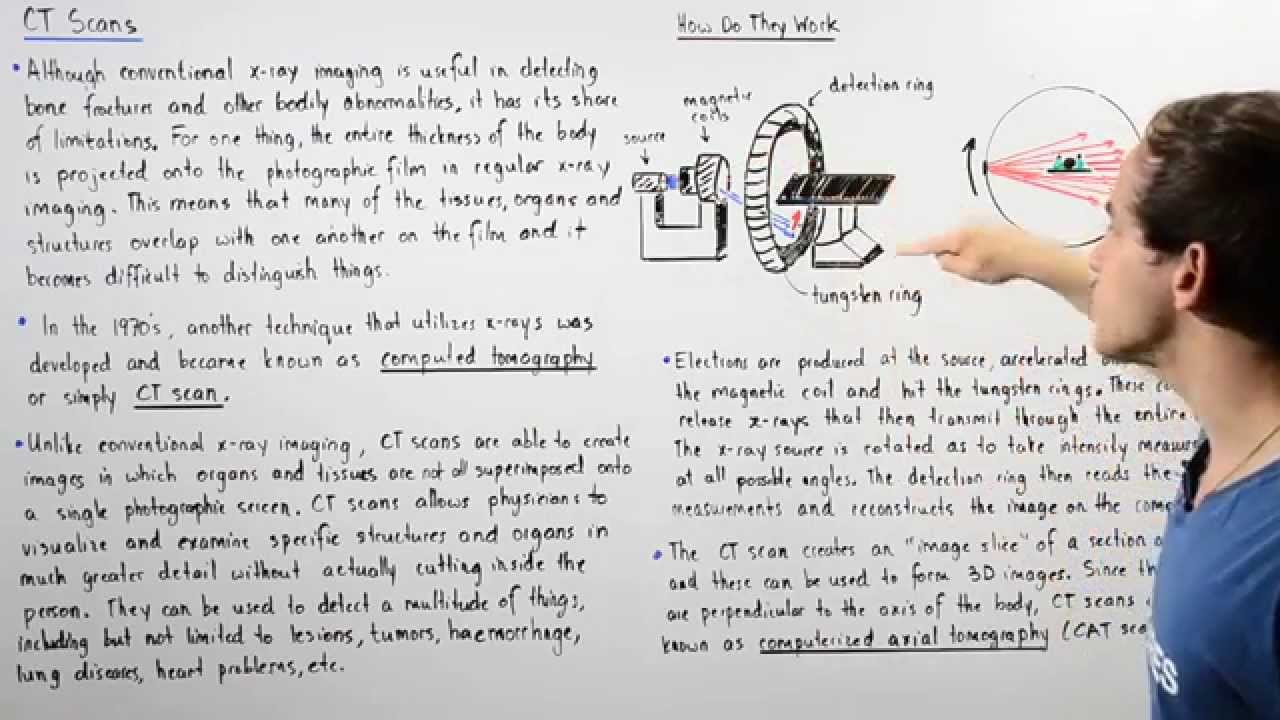 CT Scans
• Although conventional x-ray imaging is useful in detecting
bone fractures and other bodily abnormalities, it has its share
of limitations. For one thing, the entire thickness of the body
is projected onto the photographic film in regular x-ray
imaging. This means that many of the tissues, organs and
structures overlap with one another on the film and it
becomes difficult to distinguish things.
• In the 1970's, another technique that utilizes x-rays was
developed and became known as computed tomography
or simply CT scan.
• Unlike conventional x-ray imaging, CT scans are able to create
images in which organs and tissues are not all superimposed onto
a single photographic screen. CT scans allows physicians to
visualize and examine specific structures and organs in
much greater detail without actually cutting inside the
person. They can be used to detect a multitude of things,
including but not limited to lesions, tumors, haemorrhage,
lung diseases, heart problems, etc.
How Do They Work
detection ring
magnetic
coils
source
tungsten ring
• Electrons are produced at the source, accelerated
the magnetic coil and hit the tungsten rings. These
release x-rays that then transmit through the entire
The x-ray source is rotated as to take intensity
at all possible angles. The detection ring then reads the
measurements and reconstructs the image on the
• The CT scan creates an "image slice" of a section
and these can be used to form 3D images. Since
are perpendicular to the axis of the body, CT scans
known as computerized axial tomography (CAT
ES